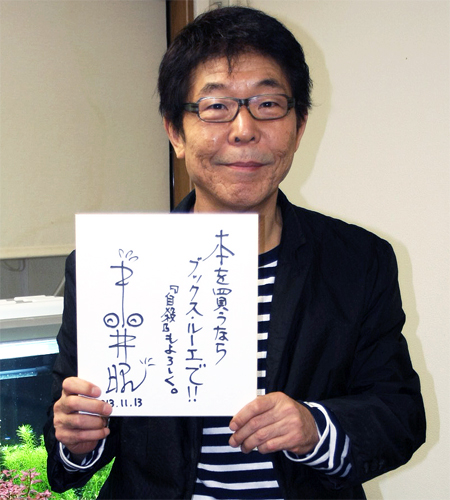 本を買うなら
ブックス・ルーエで!!
『自殺』もよろしく。
末井昭
'13.11.13